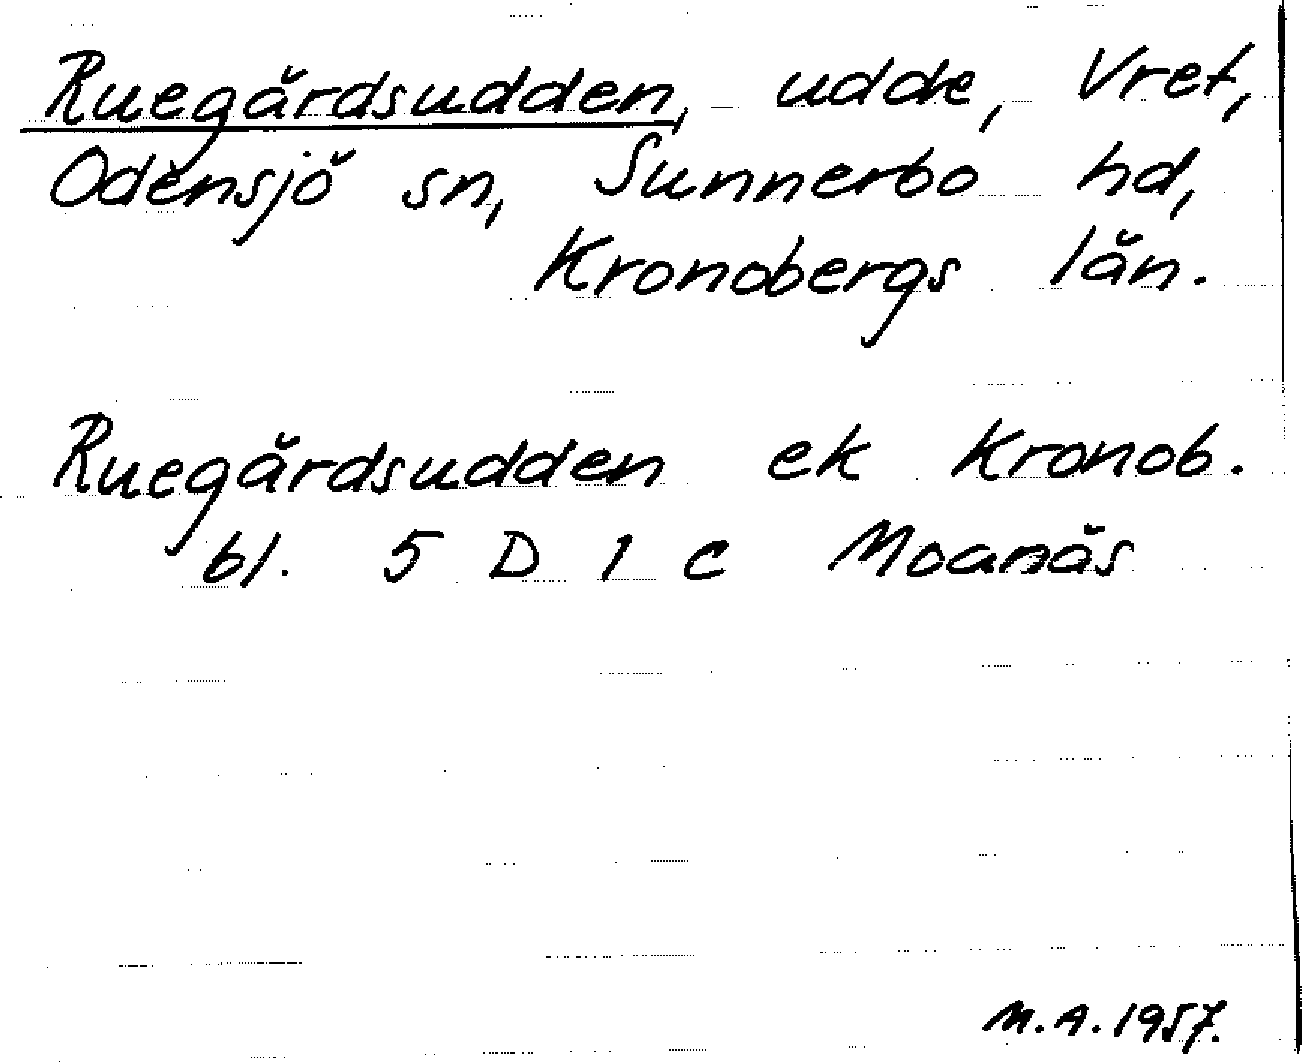 Ruegårdsudden, udde, Vret,
Odensjö sn, Sunnerbo hd,
Kronobergs län.
Ruegårdsudden ek Kronob.
bl. 5 D 1 c Moanäs
M.A. 1957.